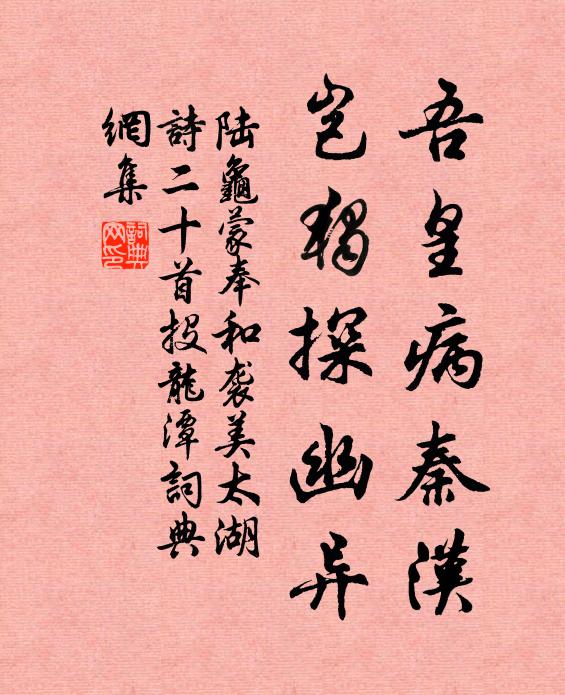 吾皇病秦漢
豈獨探幽异
陸龜蒙奉和袭美太湖
詩二十首投龍潭詞典
網集
詞典
网印